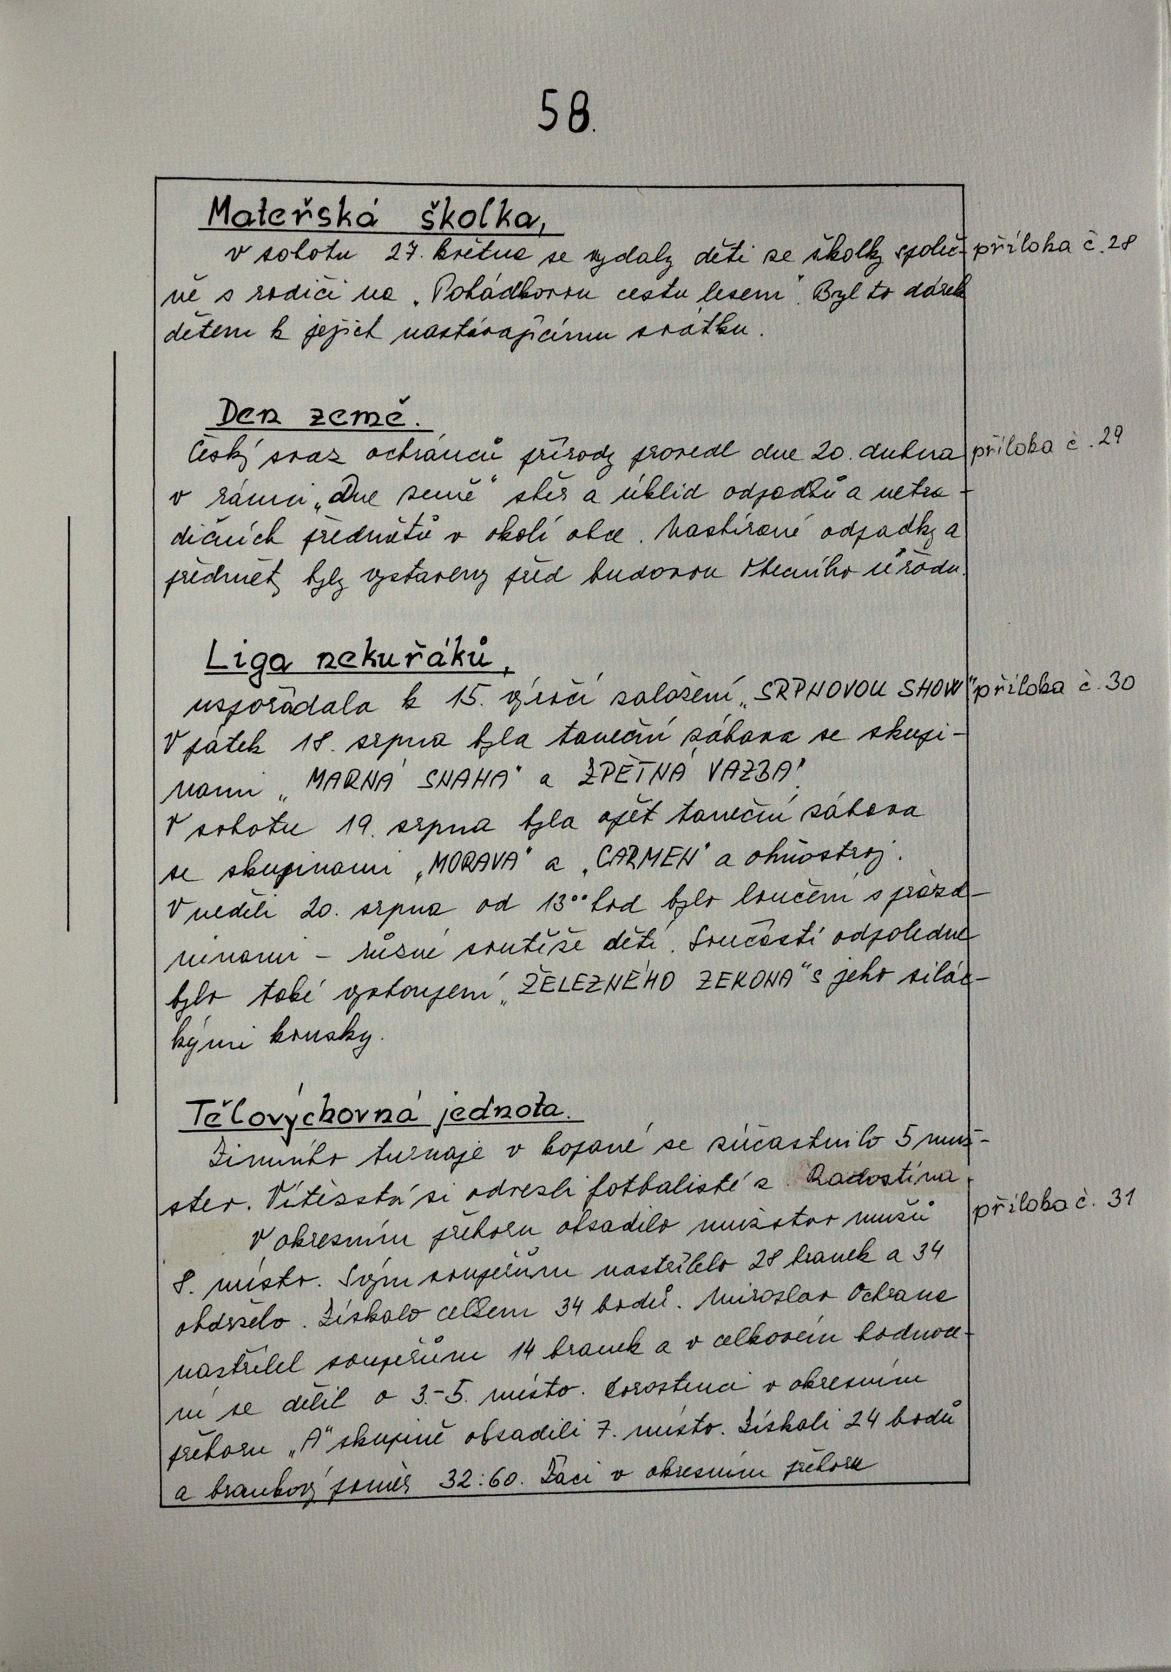 58.
Mateřská školka,
v sobotu 27. května se vydaly děti ze školky společ- příloha č. 28
ně s rodiči na „Pohádkovou cestu lesem“. Byl to dárek
dětem k jejich nastávajícímu svátku.
Den země.
Český svaz ochránců přírody provedl dne 20. dubna příloha č. 29
v rámci „Dne země“ sběr a úklid odpadků a netra-
dičních předmětů v okolí obce. Nasbírané odpadky a
předměty byly vystaveny před budovou Obecního úřadu.
Liga nekuřáků,
uspořádala k 15. výročí založení „SRPNOVOU SHOW“ příloha č. 30
V pátek 18. srpna byla taneční zábava se skupi-
nami „MARNÁ SNAHA“ a „ZPĚTNÁ VAZBA“.
V sobotu 19. srpna byla opět taneční zábava
se skupinami „MORAVA“ a „CARMEN“ a ohňostroj.
V neděli 20. srpna od 13°° hod bylo loučení s prázd-
ninami – různé soutěže dětí. Součástí odpoledne
bylo také vystoupení „ŽELEZNÉHO ZEKONA“ s jeho silác-
kými kousky.
Tělovýchovná jednota.
Zimního turnaje v kopané se zúčastnilo 5 muž-
stev. Vítězství si odvezli fotbalisté z Radostína.
V okresním přeboru obsadilo mužstvo mužů příloha č. 31
8. místo. Svým soupeřům nastřílelo 28 branek a 34
obdrželo. Získalo celkem 34 bodů. Miroslav Ochrana
nastřílel soupeřům 14 branek a v celkovém hodnoce-
ní se dělil o 3.-5. místo. Dorostenci v okresním
přeboru „A“ skupině obsadili 7. místo. Získali 24 bodů
a brankový poměr 32:60. Žáci v okresním přeboru